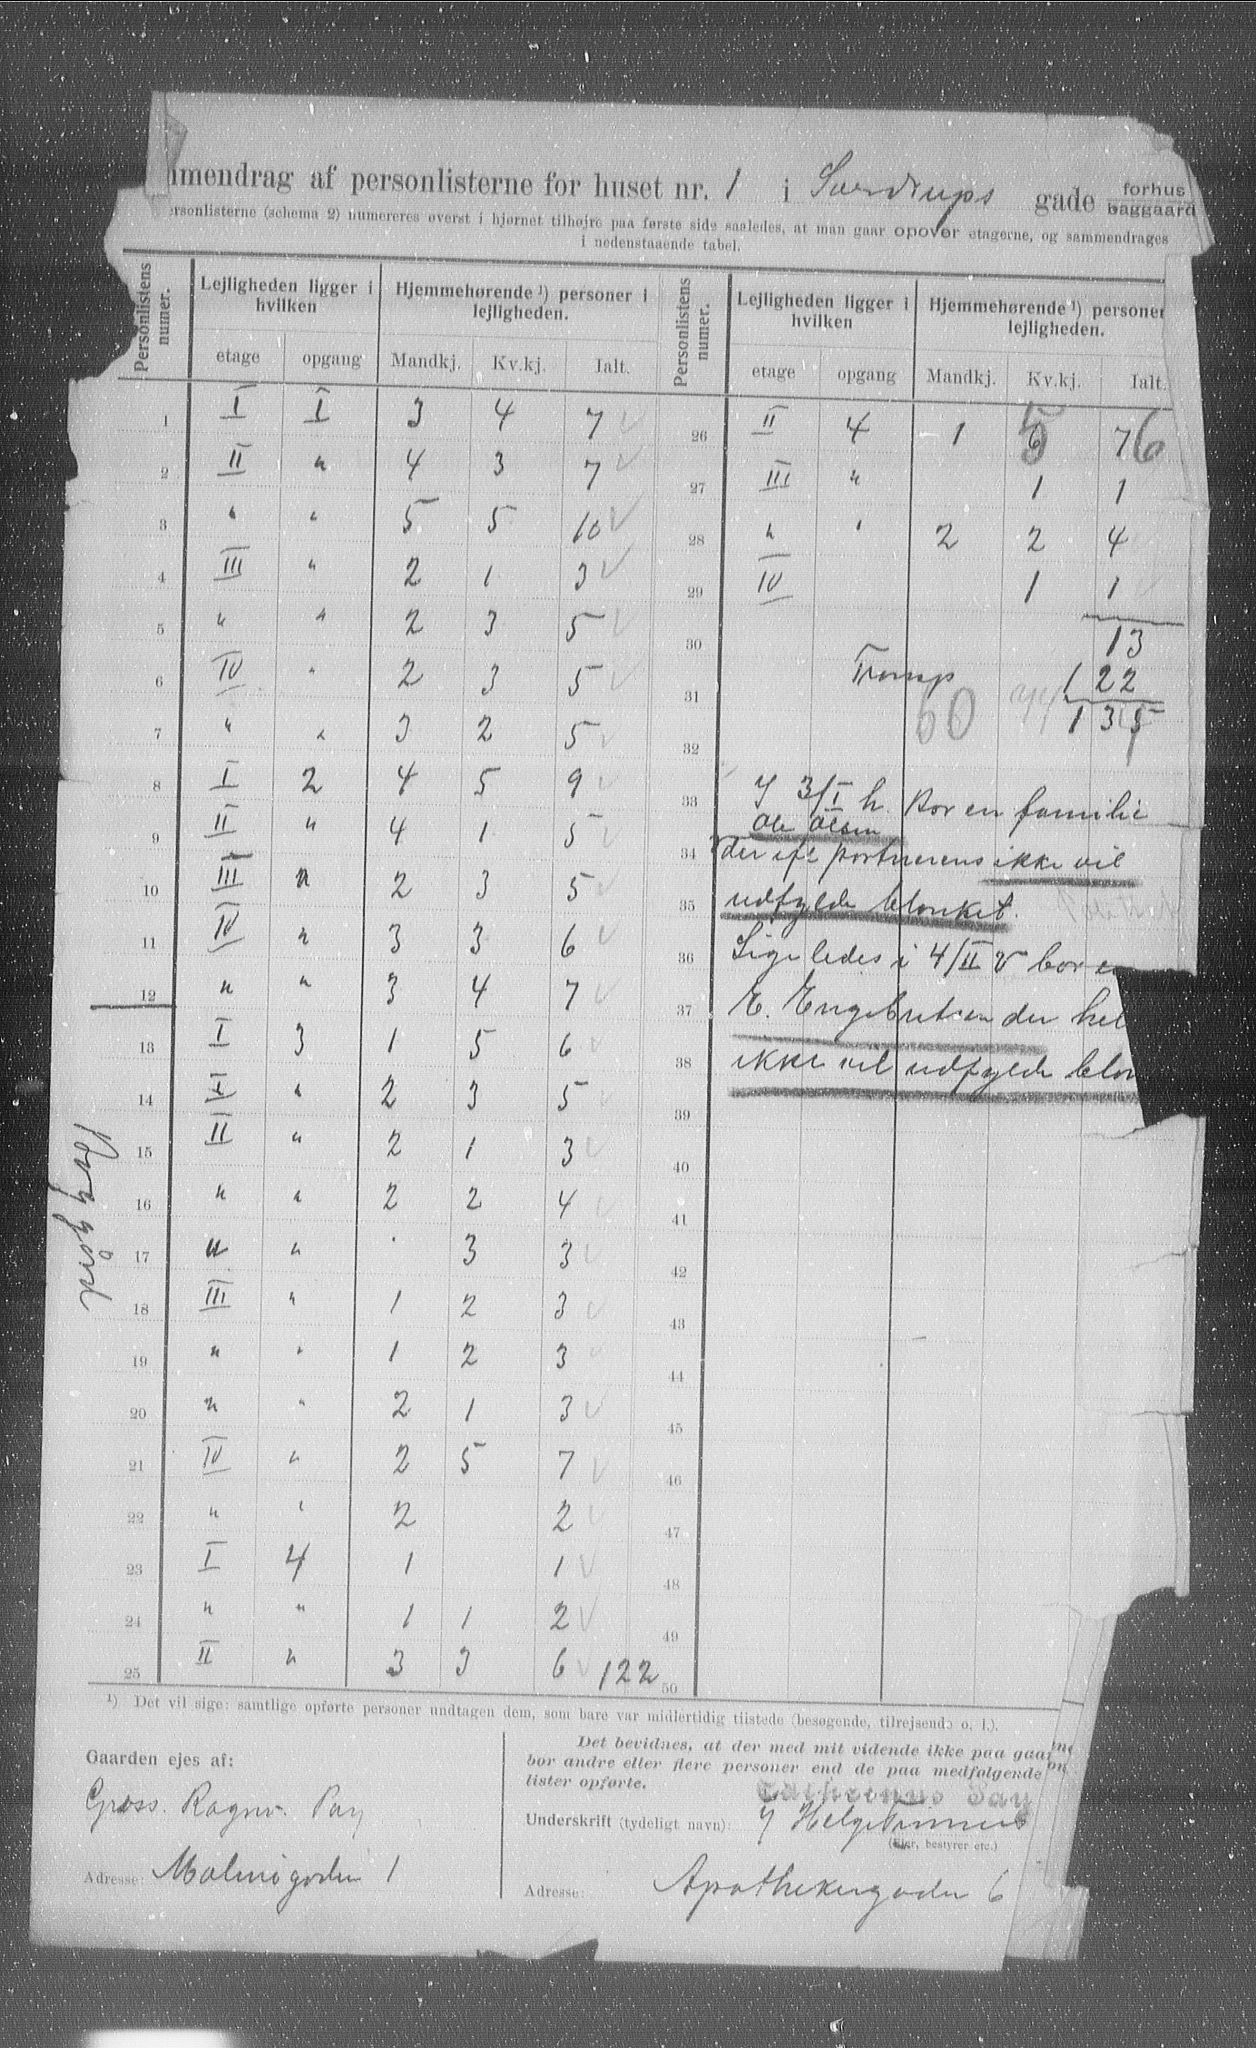 mmendrag af personlisterne for huset nr. 1 i Sverdrups gade forhus baggaard
ersonlisterne (schema 2) numereres øverst i hjørnet tilhøjre paa første side saaledes, at man gaar opover etagerne, og sammendrages
i nedenstaaende tabel.
Personlistens numer. Lejligheden ligger i hvilken Hjemmehørende ¹) personer i lejligheden. Personlistens numer. Lejligheden ligger i hvilken Hjemmehørende ¹) personer lejligheden.
etage opgang Mandkj. Kv.kj. Ialt. etage opgang Mandkj. Kv.kj. Ialt.
1 I I 3 4 7 26 II 4 1 6 5 7 6
2 II " 4 3 7 27 III " 1 1
3 " " 5 5 10 28 " " 2 2 4
4 III " 2 1 3 29 IV 1 1
5 " " 2 3 5 30 13
6 IV " 2 3 5 31 Transp 122
7 " " 3 2 5 32 60 135
8 I 2 4 5 9 33 I 3/I h. bor en familie
Ole Olsen
9 II " 4 1 5 34 der ifl portnerens ikke vil
10 III " 2 3 5 35 udfylde blanket.
11 IV " 3 3 6 36 Ligeledes i 4/II V bor e
12 " " 3 4 7 37 E. Engebretsen der hel
13 I 3 1 5 6 38 ikke vil udfylde blan
14 I " 2 3 5 39
15 II " 2 1 3 40
16 " " 2 2 4 41
17 " " 3 3 42
18 III " 1 2 3 43
19 " " 1 2 3 44
20 " " 2 1 3 45
21 IV " 2 5 7 46
22 " " 2 2 47
23 I 4 1 1 48
24 " " 1 1 2 49
25 II " 3 3 6 122 50
Baggård
¹) Det vil sige: samtlige opførte personer undtagen dem, som bare var midlertidig tilstede (besøgende, tilrejsende o. l.).
Gaarden ejes af:
Gross. Ragnv. Pay
Adresse: Malmøgaden 1
Det bevidnes, at der med mit vidende ikke paa gaar
bor andre eller flere personer end de paa medfølgende
lister opførte.
Underskrift (tydeligt navn):
(Ejer, bestyrer etc.)
Adresse: Apothekergaden 6